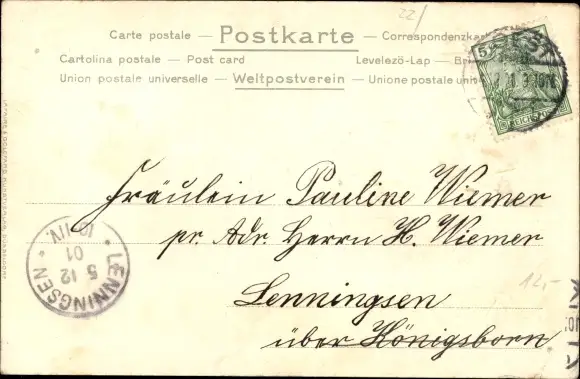 22/
Carte postale — Postkarte — Correspondenzkar
Cartolina postale — Post card Levelezö-Lap — Bri
Union postale universelle — Weltpostverein — Unione postale uni
5
REICHSPOST
Fräulein Pauline Wiemer
pr. Adr. Herrn H. Wiemer
Lenningsen
über Königsborn
LENNINGSEN
5 12
01
10-11V.
12,-